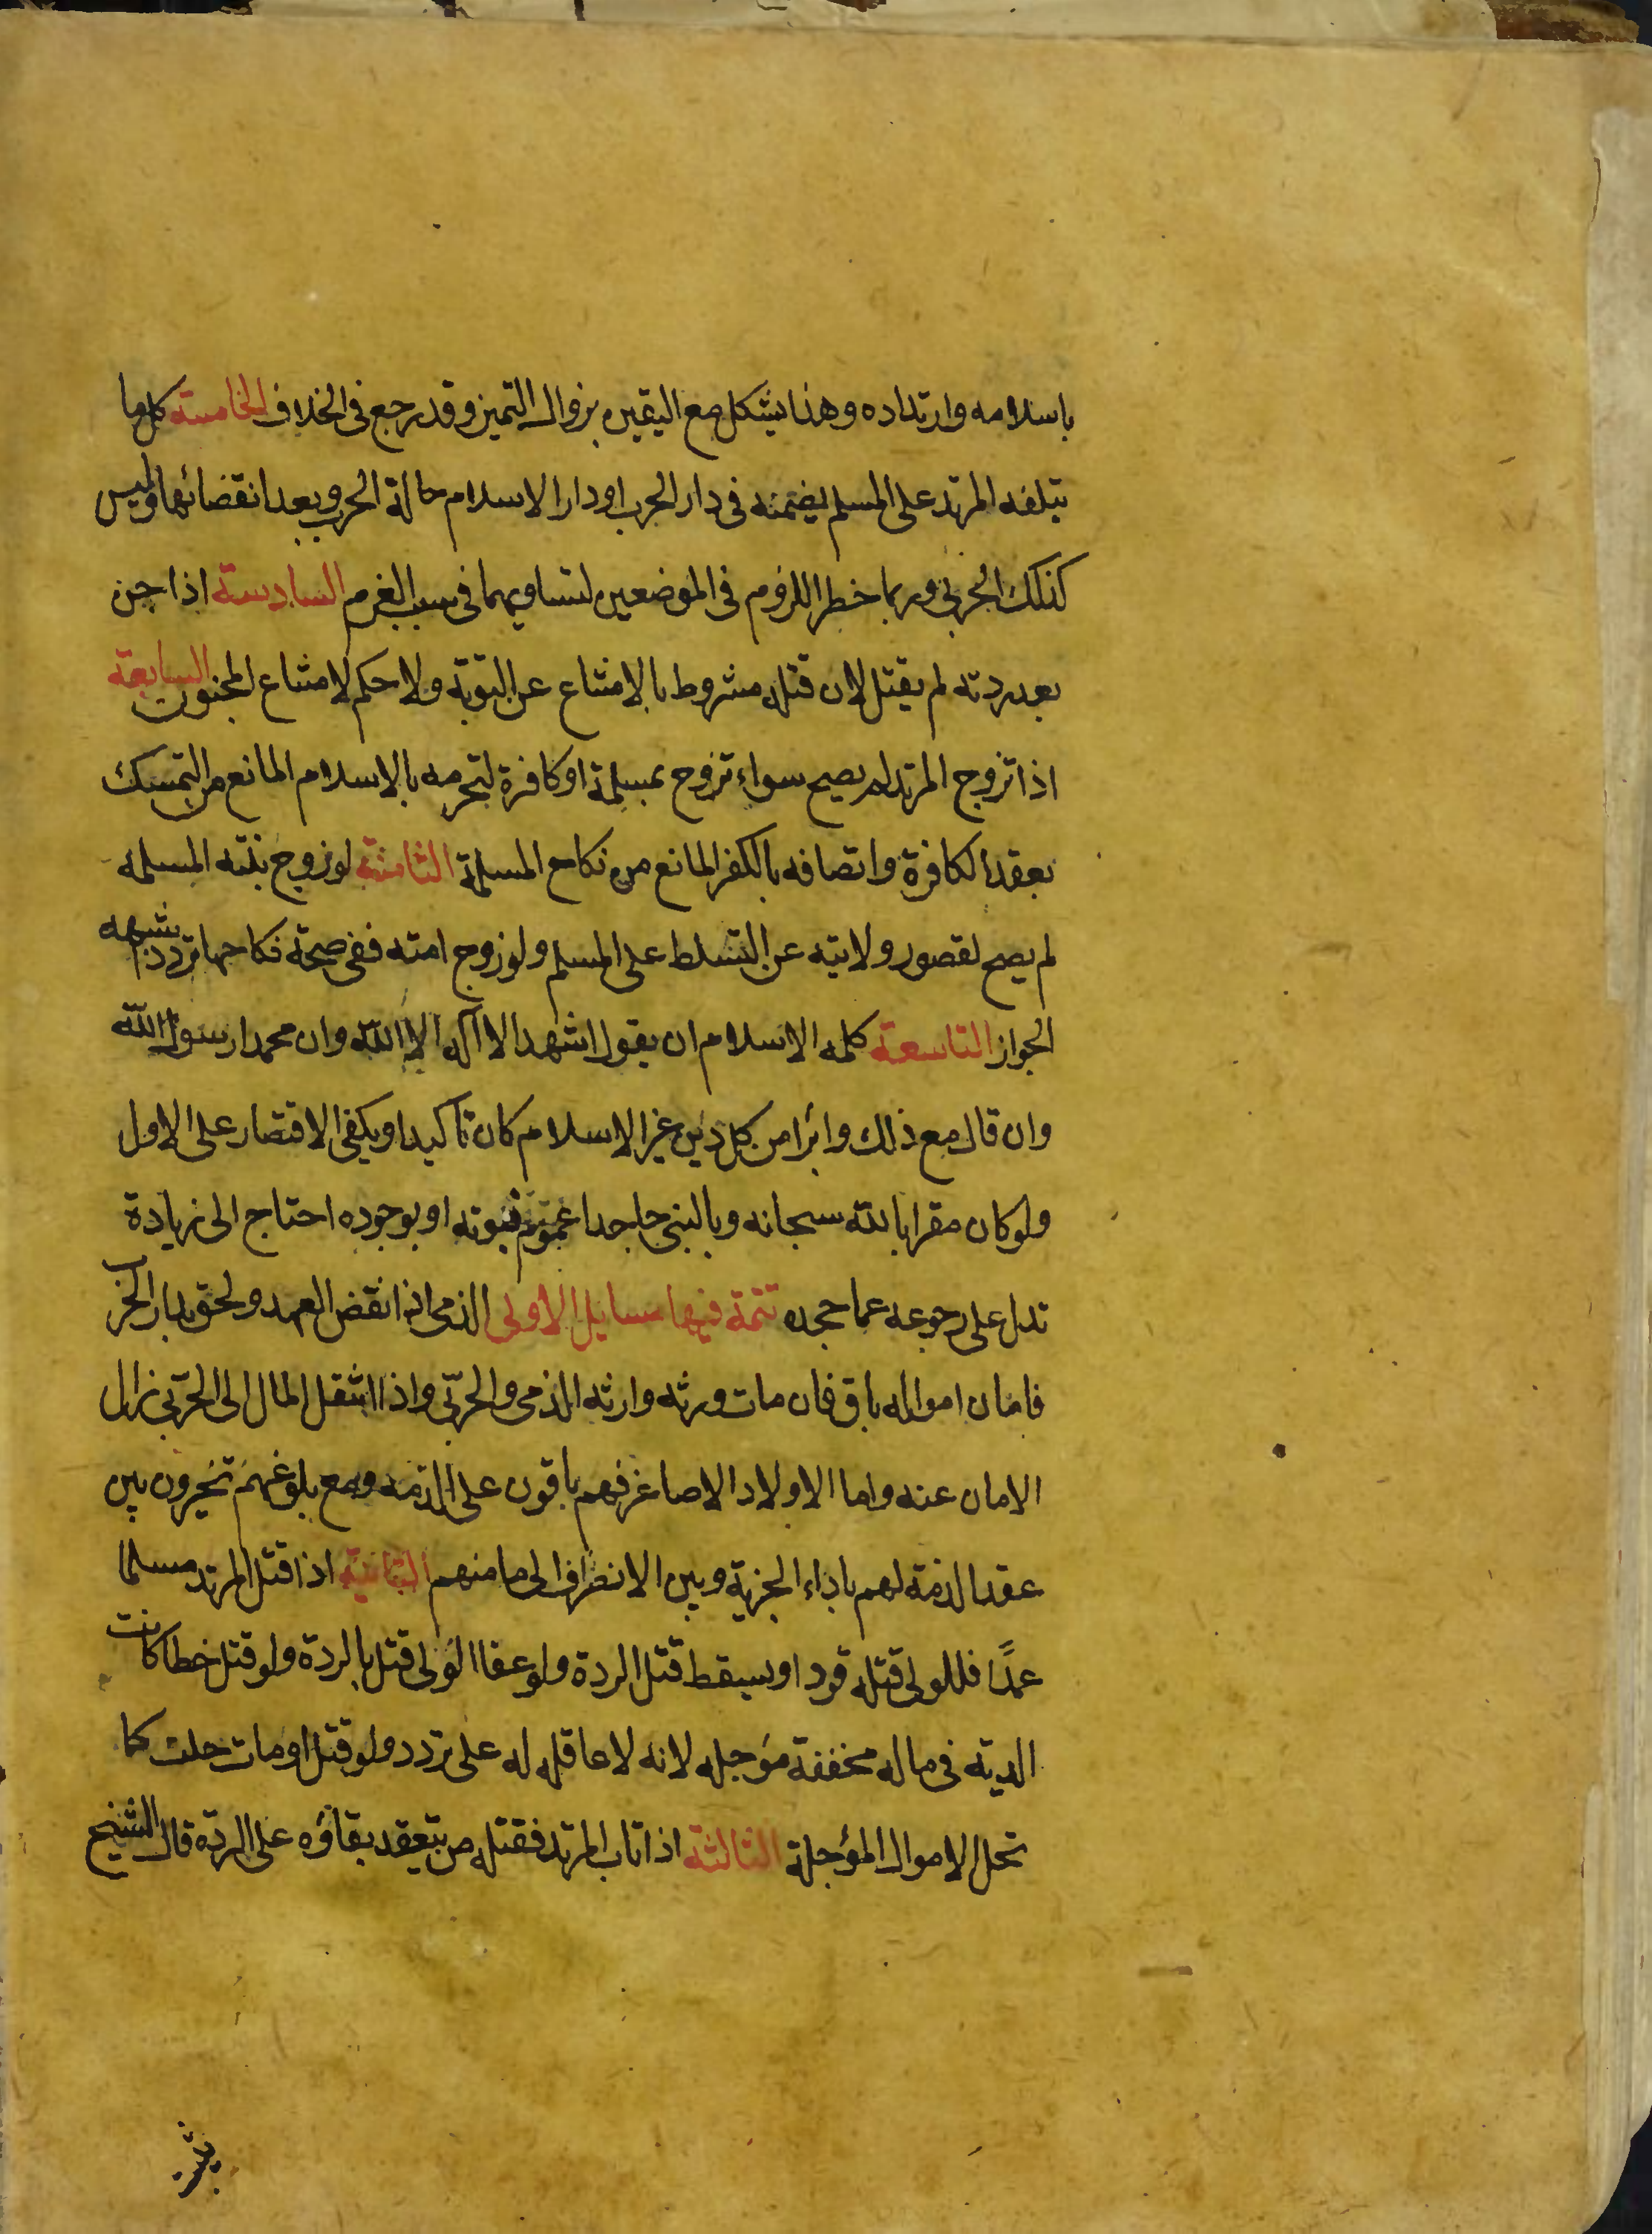 باسلامه وارتداده وهذا يشكل مع اليقين بزوال التميز وقد رجع فى الخلاف الخامسة كل ما
يتلفه المرتد على المسلم يضمنه فى دار الحرب او دار الاسلام حالة الحرب وبعد انقضائها وليس
كذلك الحربى وربما خطر اللزوم فى الموضعين لتساويهما فى سبب الغرم السادسة اذا جن
بعد ردته لم يقتل لان قتله مشروط بالامتناع عن التوبة ولا حكم لامتناع المجنون السابعة
اذا تزوج المرتد لم يصح سواء تزوج بمسلمة او كافرة لتحرمه بالاسلام المانع من التمسك
بعقد الكافرة واتصافه بالكفر المانع من نكاح المسلمة الثامنة لو زوج بنته المسلمه
لم يصح لقصور ولايته عن التسلط على المسلم ولو زوج امته ففى صحة نكاحها تردد اشبهه
الجواز التاسعة كلمه الاسلام ان يقول اشهد الا اله الا الله وان محمدا رسول الله
وان قال مع ذلك وابرا من كل دين غير الاسلام كان تاكيدا ويكفى الاقتصار على الاول
ولو كان مقرا بالله سبحانه وبالنبى جاحدا عموم نبوته او بوجوده احتاج الى زيادة
تدل على رجوعه عما جحده تتمة فيها مسايل الاولى الذمى اذا نقض العهد ولحق بدار الحرب
فامان امواله باق فان مات ورثه وارثه الذمى والحربى واذا انتقل المال الى الحربى زال
الامان عنه واما الاولاد الاصاغر فهم باقون على الذمه ومع بلوغهم تخيرون بين
عقد الذمة لهم باداء الجزية وبين الانصراف الى مامنهم الثانية اذا قتل المرتد مسلما
عمدًا فللولى قتله قودا ويسقط قتل الردة ولو عفا الولى قتل بالردة ولو قتل خطا كانت
الدية فى ماله مخففة مؤجله لانه لا عاقله له على تردد ولو قتل او مات حلت كما
تحل الاموال المؤجلة الثالثة اذا تاب المرتد فقتله من يتعقد بقاؤه على الردة قال الشيخ